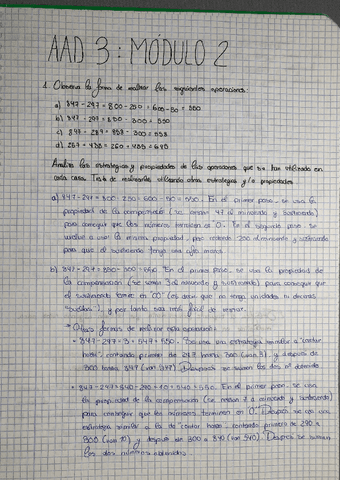 AAD 3: MÓDULO 2
1. Observa la forma de realizar las siguientes operaciones:
a) 847 - 247 = 800 - 250 = 600 - 50 = 550
b) 847 - 297 = 850 - 300 = 550
c) 847 - 289 = 858 - 300 = 558
d) 257 + 438 = 260 + 435 = 695
Analiza las estrategias y propiedades de las operaciones que se han utilizado en
cada caso. Trata de realizarlas utilizando otras estrategias y/o propiedades
En el primer paso, se usa la
propiedad de la compensación
para conseguir que los números terminen en 0. En el segundo paso, se
vuelve a usar la misma propiedad,
para que el sustraendo tenga una cifra menos.
b) 847 - 297 = 850 - 300 = 550. En el primer paso, se usa la propiedad de
la compensación (se suma 3 al minuendo y sustraendo) para conseguir que
el sustraendo termine en 00 (es decir que no tenga unidades ni decenas
"sueltas"), y por tanto sea más fácil de restar.
→ Otras formas de realizar esta operación:
Se usa una estrategia similar a "contar
hasta", contando primero de 297 hasta 300 (van 3) y después de
300 hasta 847 (van 547). Después se suman los dos
En el primer paso, se usa
la propiedad de la compensación (se restan 7 a minuendo y sustraendo)
para conseguir que los números terminen en 0. Después se usa una
estrategia similar a la de "contar hasta", contando primero de 290 a
300 (van 10) y después de 300 a 840 (van 540). Después se suman
los dos números obtenidos.